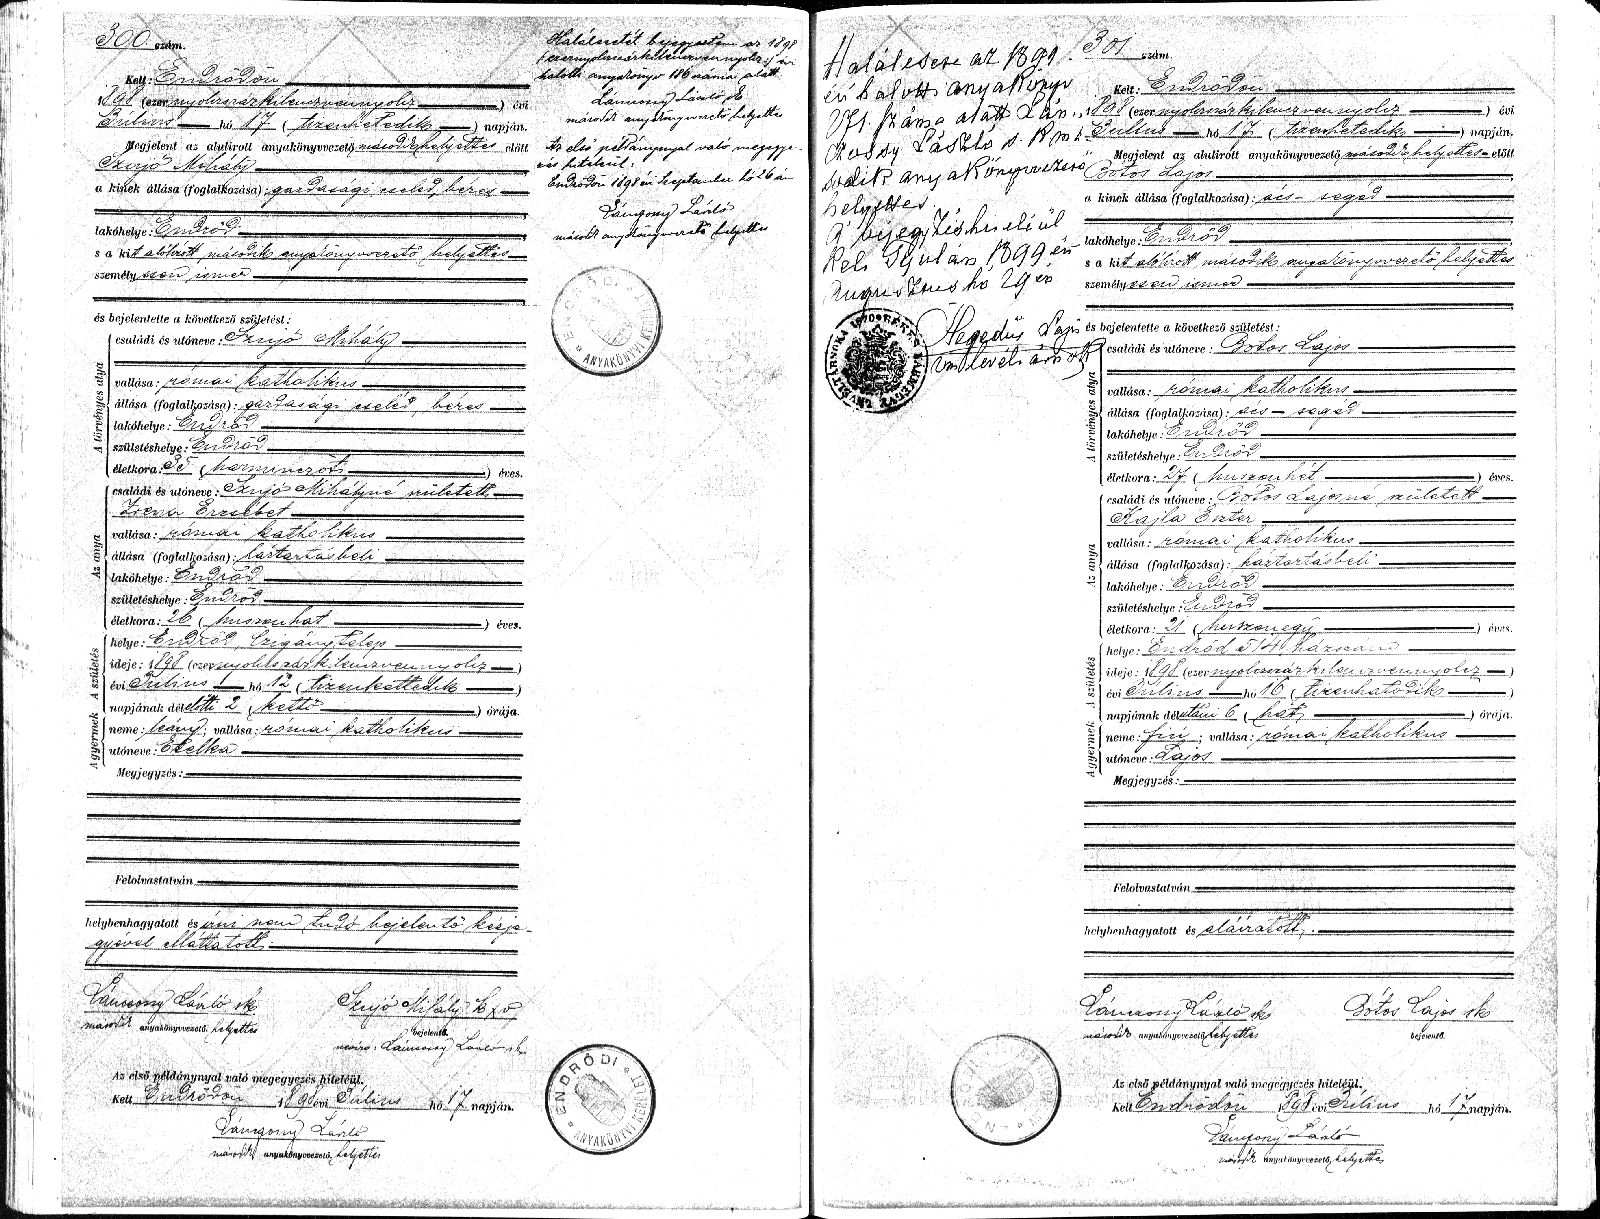 300. szám.
Kelt: Endrődön
1898 (ezernyolczszázkilenczvennyolcz) évi
Július hó 17 (tizenhetedik) napján.
Megjelent az alulirott anyakönyvezető második helyettes előtt
Szujó Mihály
a kinek állása (foglalkozása): gazdasági cseléd, béres
lakóhelye: Endrőd
s a kit alólirott második anyakönyvvezető helyettes
személyesen ismer
és bejelentette a következő születést:
A törvényes atya
családi és utóneve: Szujó Mihály
vallása: római katholikus
állása (foglalkozása): gazdasági cseléd, béres
lakóhelye: Endrőd
születéshelye: Endrőd
életkora: 35 (harminczöt) éves.
Az anya
családi és utóneve: Szujó Mihályné született
Erzsébet
vallása: római katholikus
állása (foglalkozása): háztartásbeli
lakóhelye: Endrőd
születéshelye: Endrőd
életkora: 26 (huszonhat) éves.
A születés
helye: Endrőd, Czigánytelep
ideje: 1898 (ezernyolczszázkilenczvennyolcz)
évi Július hó 12 (tizenkettedik)
napjának délelőtti 2 (kettő) órája.
A gyermek
neme: leány; vallása: római katholikus
utóneve: Etelka
Megjegyzés:
Felolvastatván
helybenhagyatott és írni nem tudó bejelentő kézje-
gyével elláttatott.
Lánczony László sk
második anyakönyvvezető, helyettes
Szujó Mihály k x v
bejelentő.
névíró: Lánczony László sk.
Az első példánynyal való megegyezés hiteléül.
Kelt Endrődön 1898 évi Július hó 17 napján.
Lánczony László
második anyakönyvvezető, helyettes
Halálesetét bejegyeztem az 1898
(ezernyolczszázkilenczvennyolcz) évi
halotti anyakönyv 186 száma alatt.
Lánczony László sk
második anyakönyvvezető helyettes
Az első példánynyal való megegye-
zés hiteléül.
Endrődön 1898 évi Szeptember hó 26 án
Lánczony László
második anyakönyvvezető helyettes
ENDRŐDI
ANYAKÖNYVI KERÜLET
Halálesete az 1899
évi halotti anyakönyv
száma alatt Lán-
László s. k. má-
sodik anyakönyvvezető
helyettes.
A bejegyzés hiteléül
Kelt Gyulán 1899 évi
Augusztus hó 29 én
Hegedüs Lajos
vm. levéltárnok
301. szám.
Kelt: Endrődön
1898 (ezernyolczszázkilenczvennyolcz) évi
Július hó 17 (tizenhetedik) napján.
Megjelent az alulirott anyakönyvvezető második helyettes előtt
Botos Lajos
a kinek állása (foglalkozása): ács-segéd
lakóhelye: Endrőd
s a kit alólirott második anyakönyvvezető helyettes
személyesen ismer
és bejelentette a következő születést:
A törvényes atya
családi és utóneve: Botos Lajos
vallása: római katholikus
állása (foglalkozása): ács-segéd
lakóhelye: Endrőd
születéshelye: Endrőd
életkora: 27 (huszonhét) éves.
Az anya
családi és utóneve: Botos Lajosné született
Kajla Eszter
vallása: római katholikus
állása (foglalkozása): háztartásbeli
lakóhelye: Endrőd
születéshelye: Endrőd
életkora: 21 (huszonegy) éves.
A születés
helye: Endrőd 514 házszám
ideje: 1898 (ezernyolczszázkilenczvennyolcz)
évi Július hó 16 (tizenhatodik)
napjának délutáni 6 (hat) órája.
A gyermek
neme: fiú; vallása: római katholikus
utóneve: Lajos
Megjegyzés:
Felolvastatván
helybenhagyatott és aláíratott.
Lánczony László sk
második anyakönyvvezető helyettes
Botos Lajos sk
bejelentő.
Az első példánynyal való megegyezés hiteléül.
Kelt Endrődön 1898 évi Július hó 17 napján.
Lánczony László
második anyakönyvvezető, helyettes